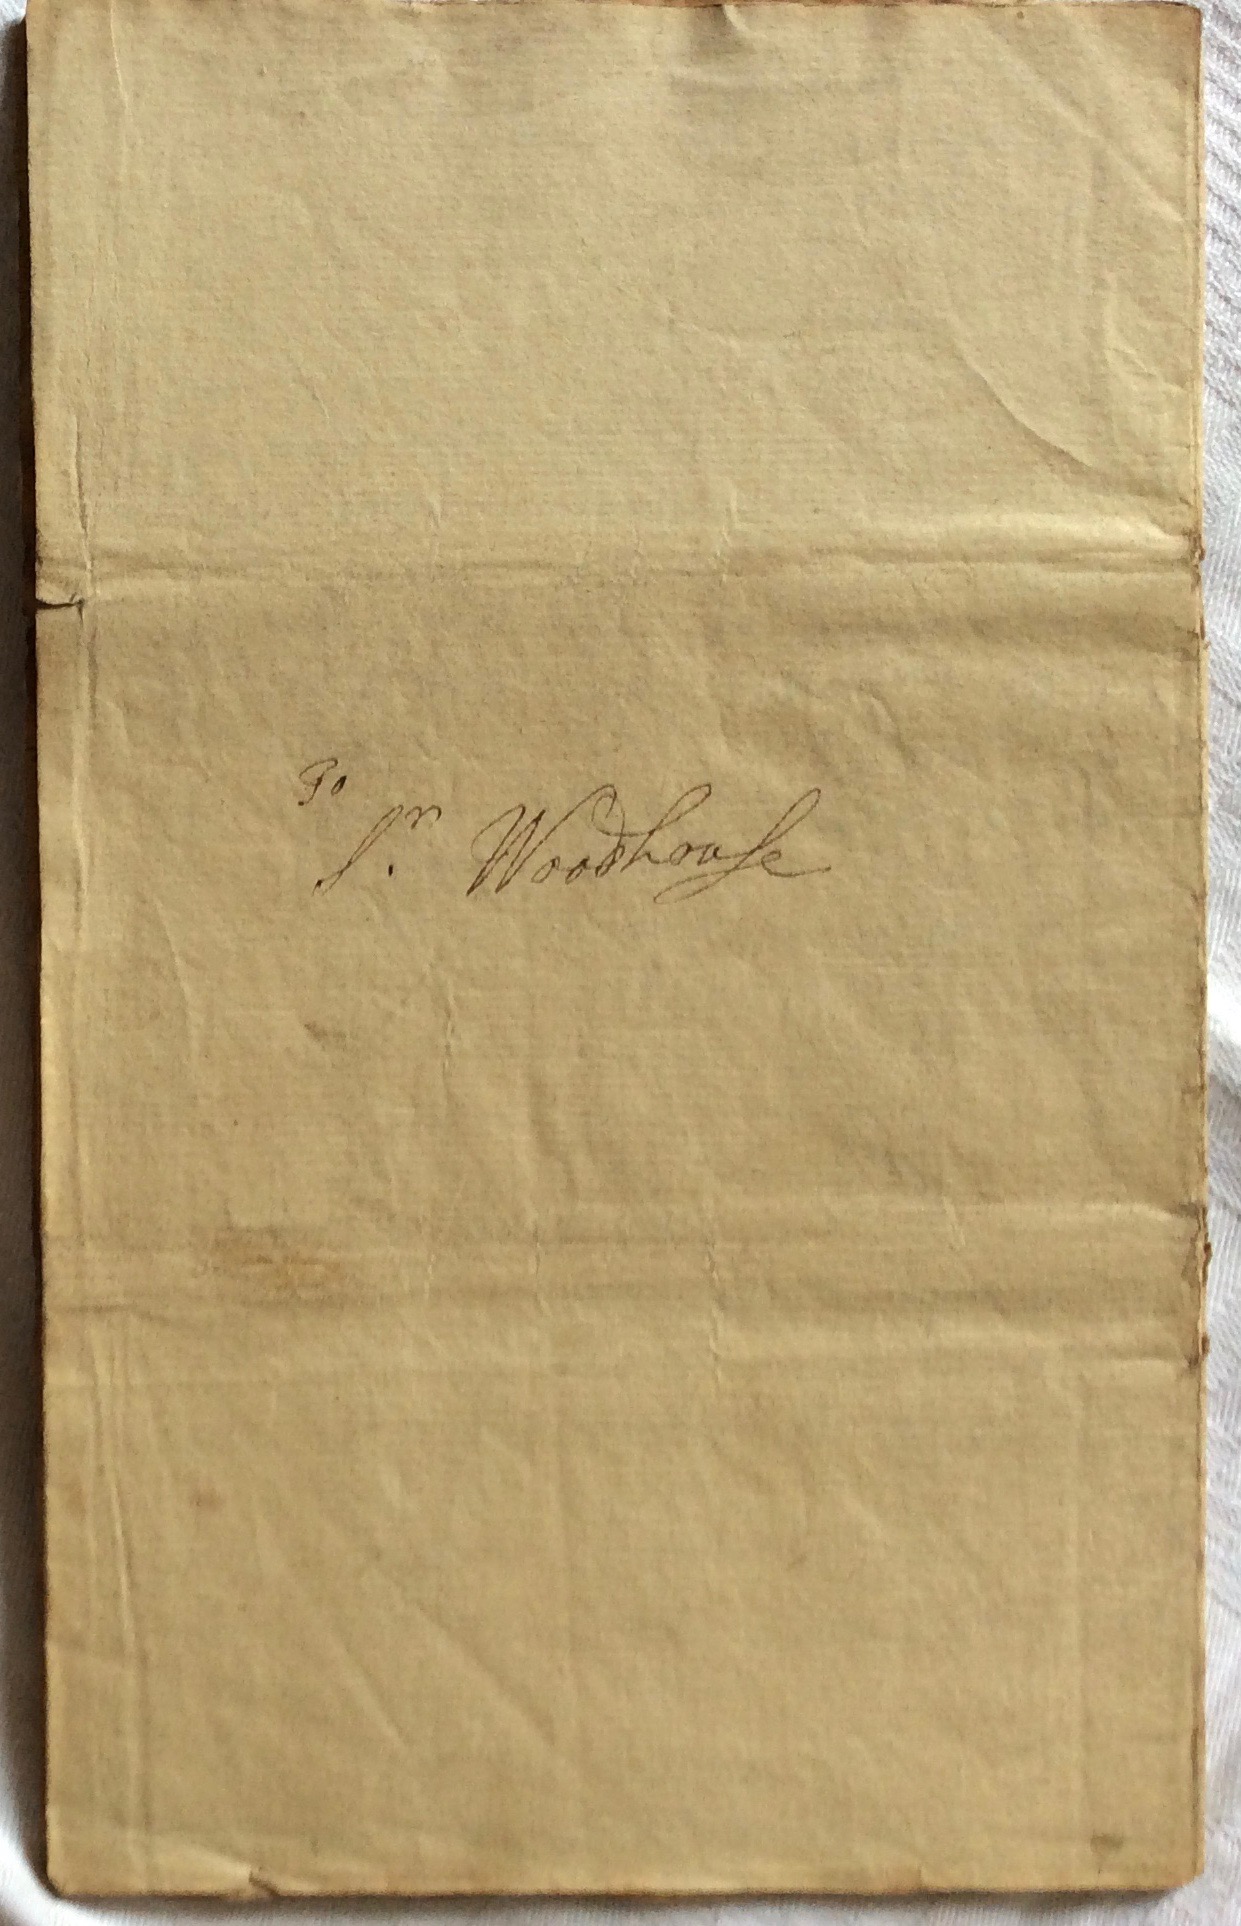 To
Sr. Woodhouse